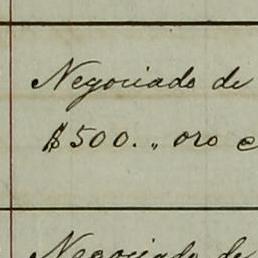 Negociado de
$500.„ oro c
Negociado de